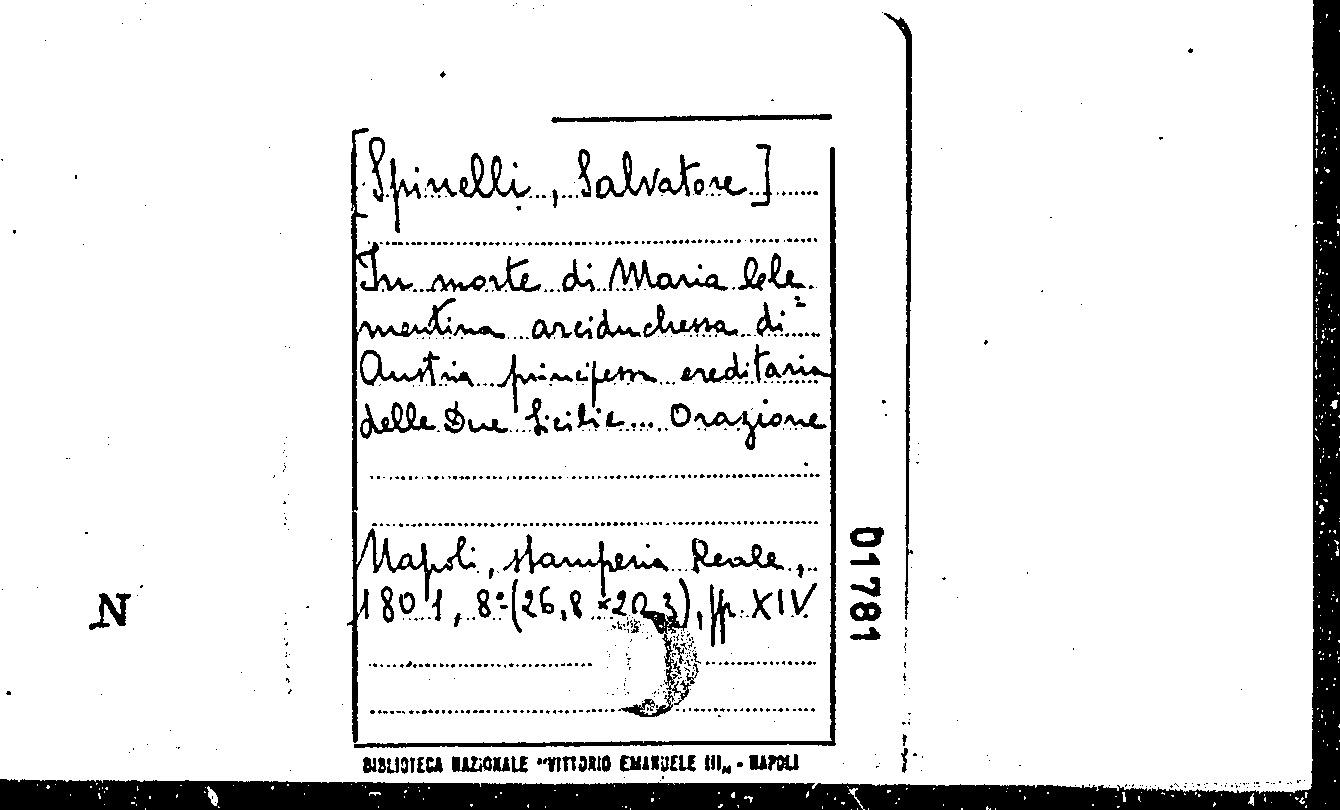 [Spinelli, Salvatore]
In morte di Maria Cle
mentina arciduchessa di
Austria principessa ereditaria
delle Due Sicilie... Orazione
Napoli, stamperia Reale,
1801, 8º (26,8 x 20,3), pp. XIV
01781
N
BIBLIOTECA NAZIONALE "VITTORIO EMANUELE III„ - NAPOLI